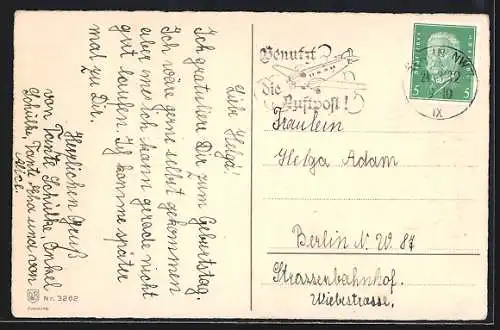 Liebe Helga!
Ich gratuliere Dir zum Geburtstag.
Ich wäre gerne selbst gekommen
aber ich kann gerade nicht
gut laufen. Ich komme später
mal zu Dir.
Herzlichen Gruß
von Tante Schülke, Onkel
Schülke, Tante und von
Nr. 3262
Benutzt
die
Luftpost!
BERLIN NW
IX
5 5
Fräulein
Helga Adam
Berlin N. W. 87
Strassenbahnhof.
Wiebestrasse.